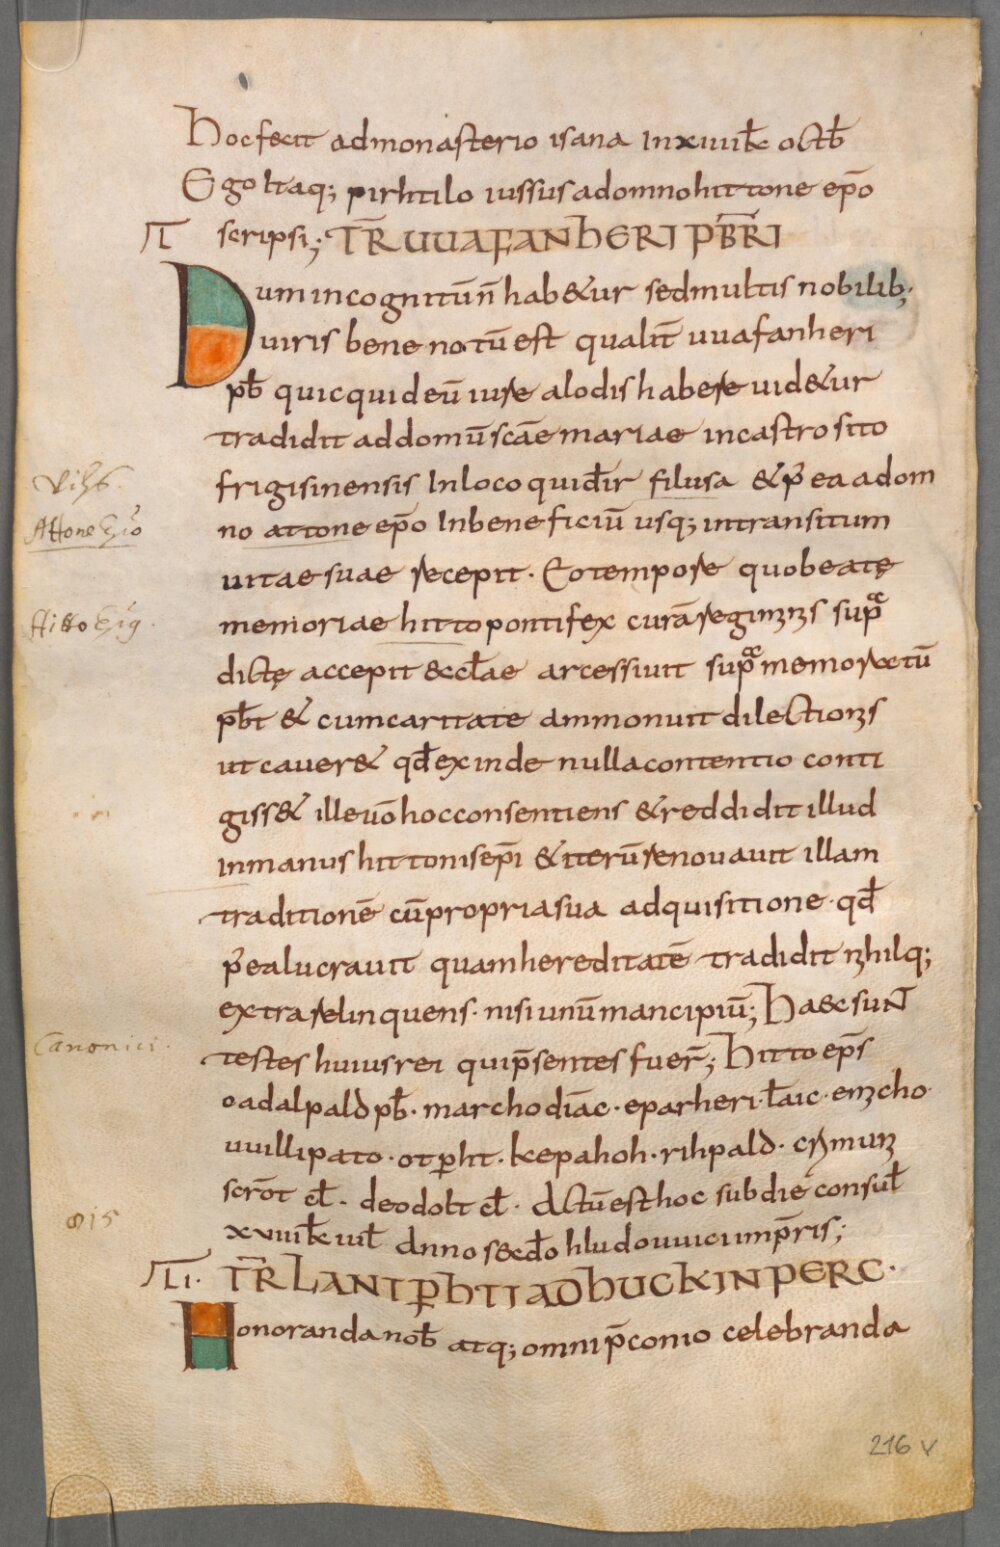 Hoc fecit ad monasterio isana In xiiii kł octb̄
Ego itaq; pirhtilo iussus a domno hittone ep̄o
scripsi; TR̄ UUAFANHERI PB̄RI
Dum incognitū n̄ hab&ur sed multis nobilib;
uiris bene notū est qualit̄ uuafanheri
pb̄ quicquid eū iure alodis habere uid&ur
tradidit ad domū scāe mariae in castro sito
frigisinensis In loco qui dr̄ filusa & p̄ ea a dom
no attone ep̄o In beneficiū usq; in transitum
uitae suae recepit. Eo tempore quo beatę
memoriae hitto pontifex curā reginnis sup̄
dictę accepit & ecł̄ae arcessiuit sup̄ memoratū
pb̄t & cum caritate ammonuit dilectionis
ut cauer& qd̄ exinde nulla contentio conti
giss& ille uō hoc consentiens & reddidit illud
in manus hittonis ep̄i & iterū renouauit illam
traditionē cū propria sua adquisitione. qd̄
p̄ ea lucrauit quam hereditatē tradidit nihilq;
extra relinquens. nisi unū mancipiū; Haec sunt
testes huius rei qui p̄sentes fuer̄; Hitto ep̄s
oadalpald pb̄. marcho diāc. eparheri. ł̄aic. enicho
uuillipato. otp̄ht. kepahoh. rihpald. crimuni
scrōt cł̄. deodolt cł̄. Actū est hoc sub die consuł
xviiii kł iuł Anno secd̄o hludouuici imp̄ris;
LI. TR̄ LANTP̄HTI AD HUCKINPERC.
Honoranda nob̄ atq; omni p̄conio celebranda
Vihs.
Attone Ep̄o
Hitto Epŭs.
Canonici.
815
216 v